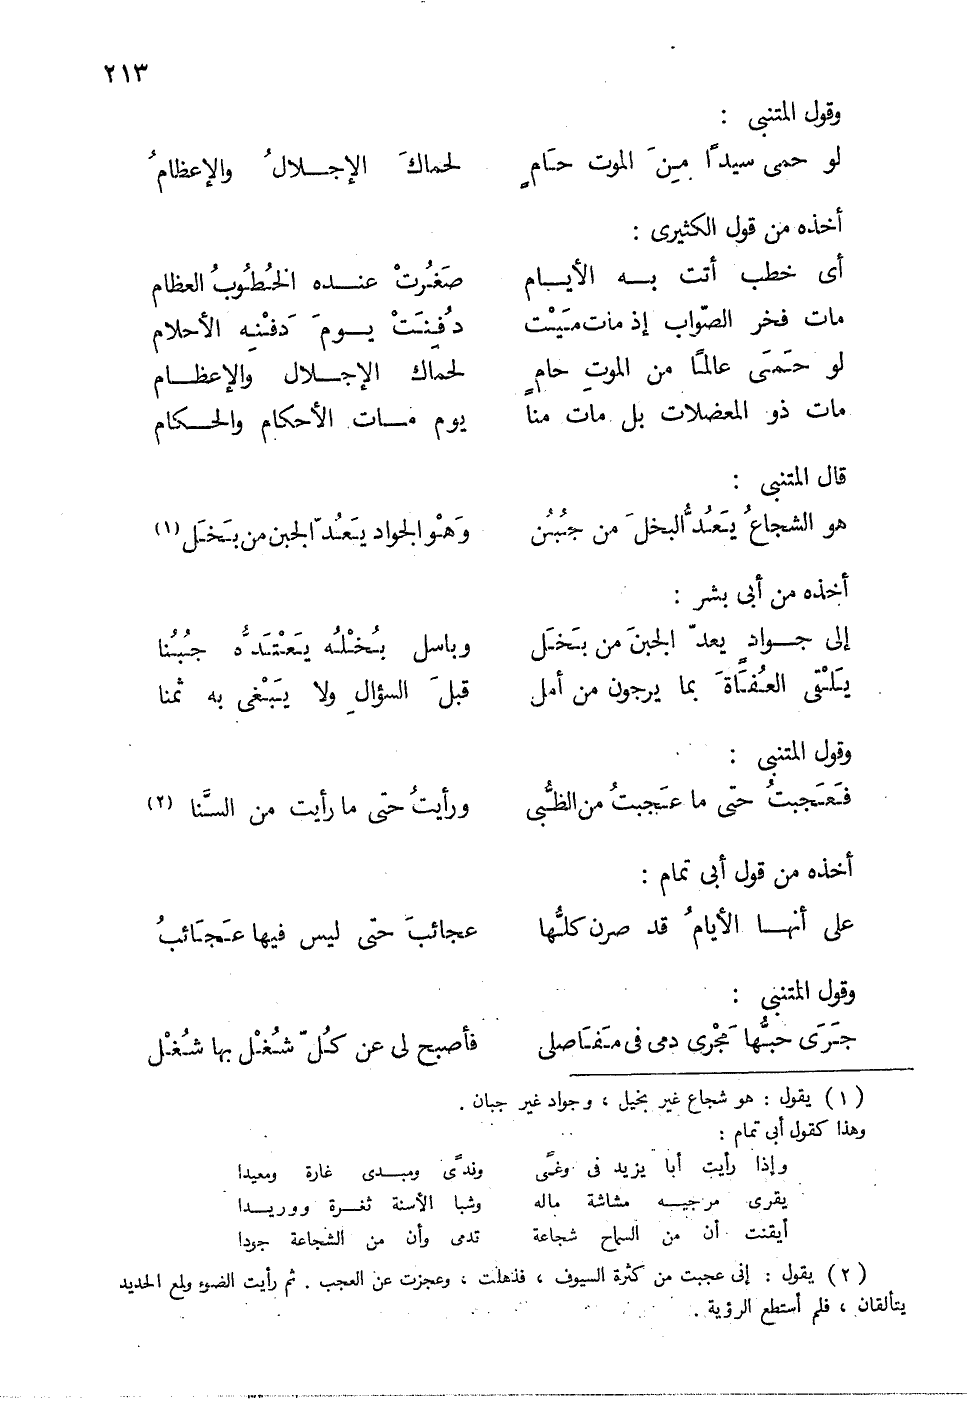 ٢١٣
وقول المتنبى :
لو حمى سيدًا مِنَ الموت حَامٍ لحماكَ الإجلالُ والإعظامُ
أخذه من قول الكثيرى :
أى خطب أتت به الأيام صَغُرتْ عنده الخُطُوبُ العظام
مات فخر الصّواب إذ مات مَيْت دُفِنَتْ يومَ دفْنِه الأحلام
لو حَمَى عالمًا من الموتِ حامٍ لحماك الإجلال والإعظام
مات ذو المعضلات بل مات منا يوم مات الأحكام والحكام
قال المتنبى :
هو الشجاعُ يَعُدُّ البخلَ من جُبُن وَهْو الجواد يَعُدّ الجبن من بَخَل (١)
أخذه من أبى بشر :
إلى جوادٍ يعدّ الجبنَ من بَخَل وباسل بُخْلُه يَعْتَدُّه جُبُنا
يَلْقى العُفَاةَ بما يرجون من أمل قبلَ السؤالِ ولا يَبْغى به ثمنا
وقول المتنبى :
فَعَجبتُ حتّى ما عَجبتُ من الظُّبى ورأيتُ حتّى ما رأيت من السَّنا (٢)
أخذه من قول أبى تمام :
على أنها الأيامُ قد صرن كلُّها عجائبَ حتّى ليس فيها عَجَائبُ
وقول المتنبى :
جَرَى حبُّها مَجْرى دمى فى مَفَاصلى فأصبح لى عن كُلّ شُغْل بها شُغْل
(١) يقول : هو شجاع غير بخيل ، وجواد غير جبان .
وهذا كقول أبى تمام :
وإذا رأيت أبا يزيد فى وغًى وندًى ومبدى غارة ومعيدا
يقرى مرجيه مشاشة ماله وشبا الأسنة ثغرة ووريدا
أيقنت أن من السماح شجاعة تدمى وأن من الشجاعة جودا
(٢) يقول : إنى عجبت من كثرة السيوف ، فذهلت ، وعجزت عن العجب . ثم رأيت الضوء ولمع الحديد
يتألقان ، فلم أستطع الرؤية .